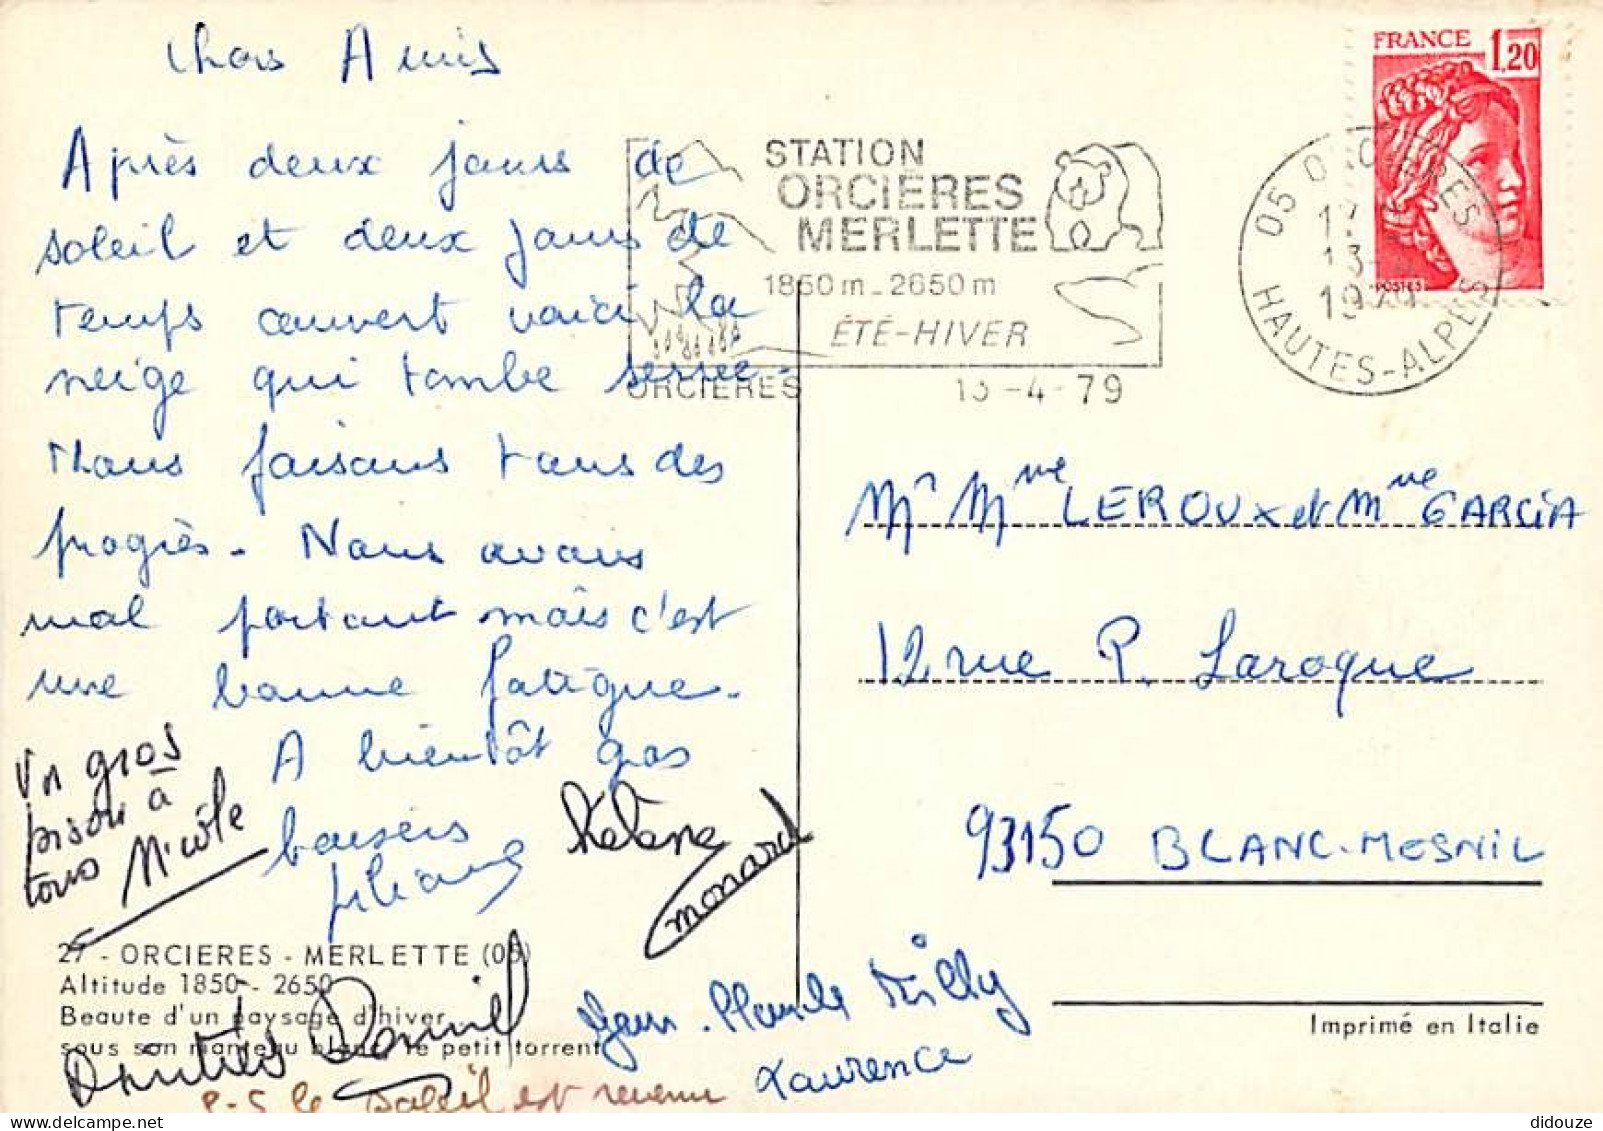 Chers Amis
Après deux jours de
soleil et deux jours de
temps couvert voici la
neige qui tombe serrée.
Nous faisons tous des
progrès. Nous avons
mal partout mais c'est
une bonne fatigue.
A bientôt gros
baisers
Un gros
bisou à
tous Nicole
Hélène
monard
27 - ORCIERES - MERLETTE (05)
Altitude 1850 - 2650
Beaute d'un paysage d'hiver
sous son manteau blanc le petit torrent
Daniel
Jean-Claude Willy
Laurence
P.S le soleil est revenu
STATION
ORCIERES
MERLETTE
1850m-2650m
ÉTÉ-HIVER
ORCIERES 13-4-79
05 ORCIERES
17
13-4
1979
HAUTES-ALPES
FRANCE 1,20
POSTES
Mr Mme LEROUX et Mme GARCIA
12 rue P. Laroque
93150 BLANC-MESNIL
Imprimé en Italie
didouze